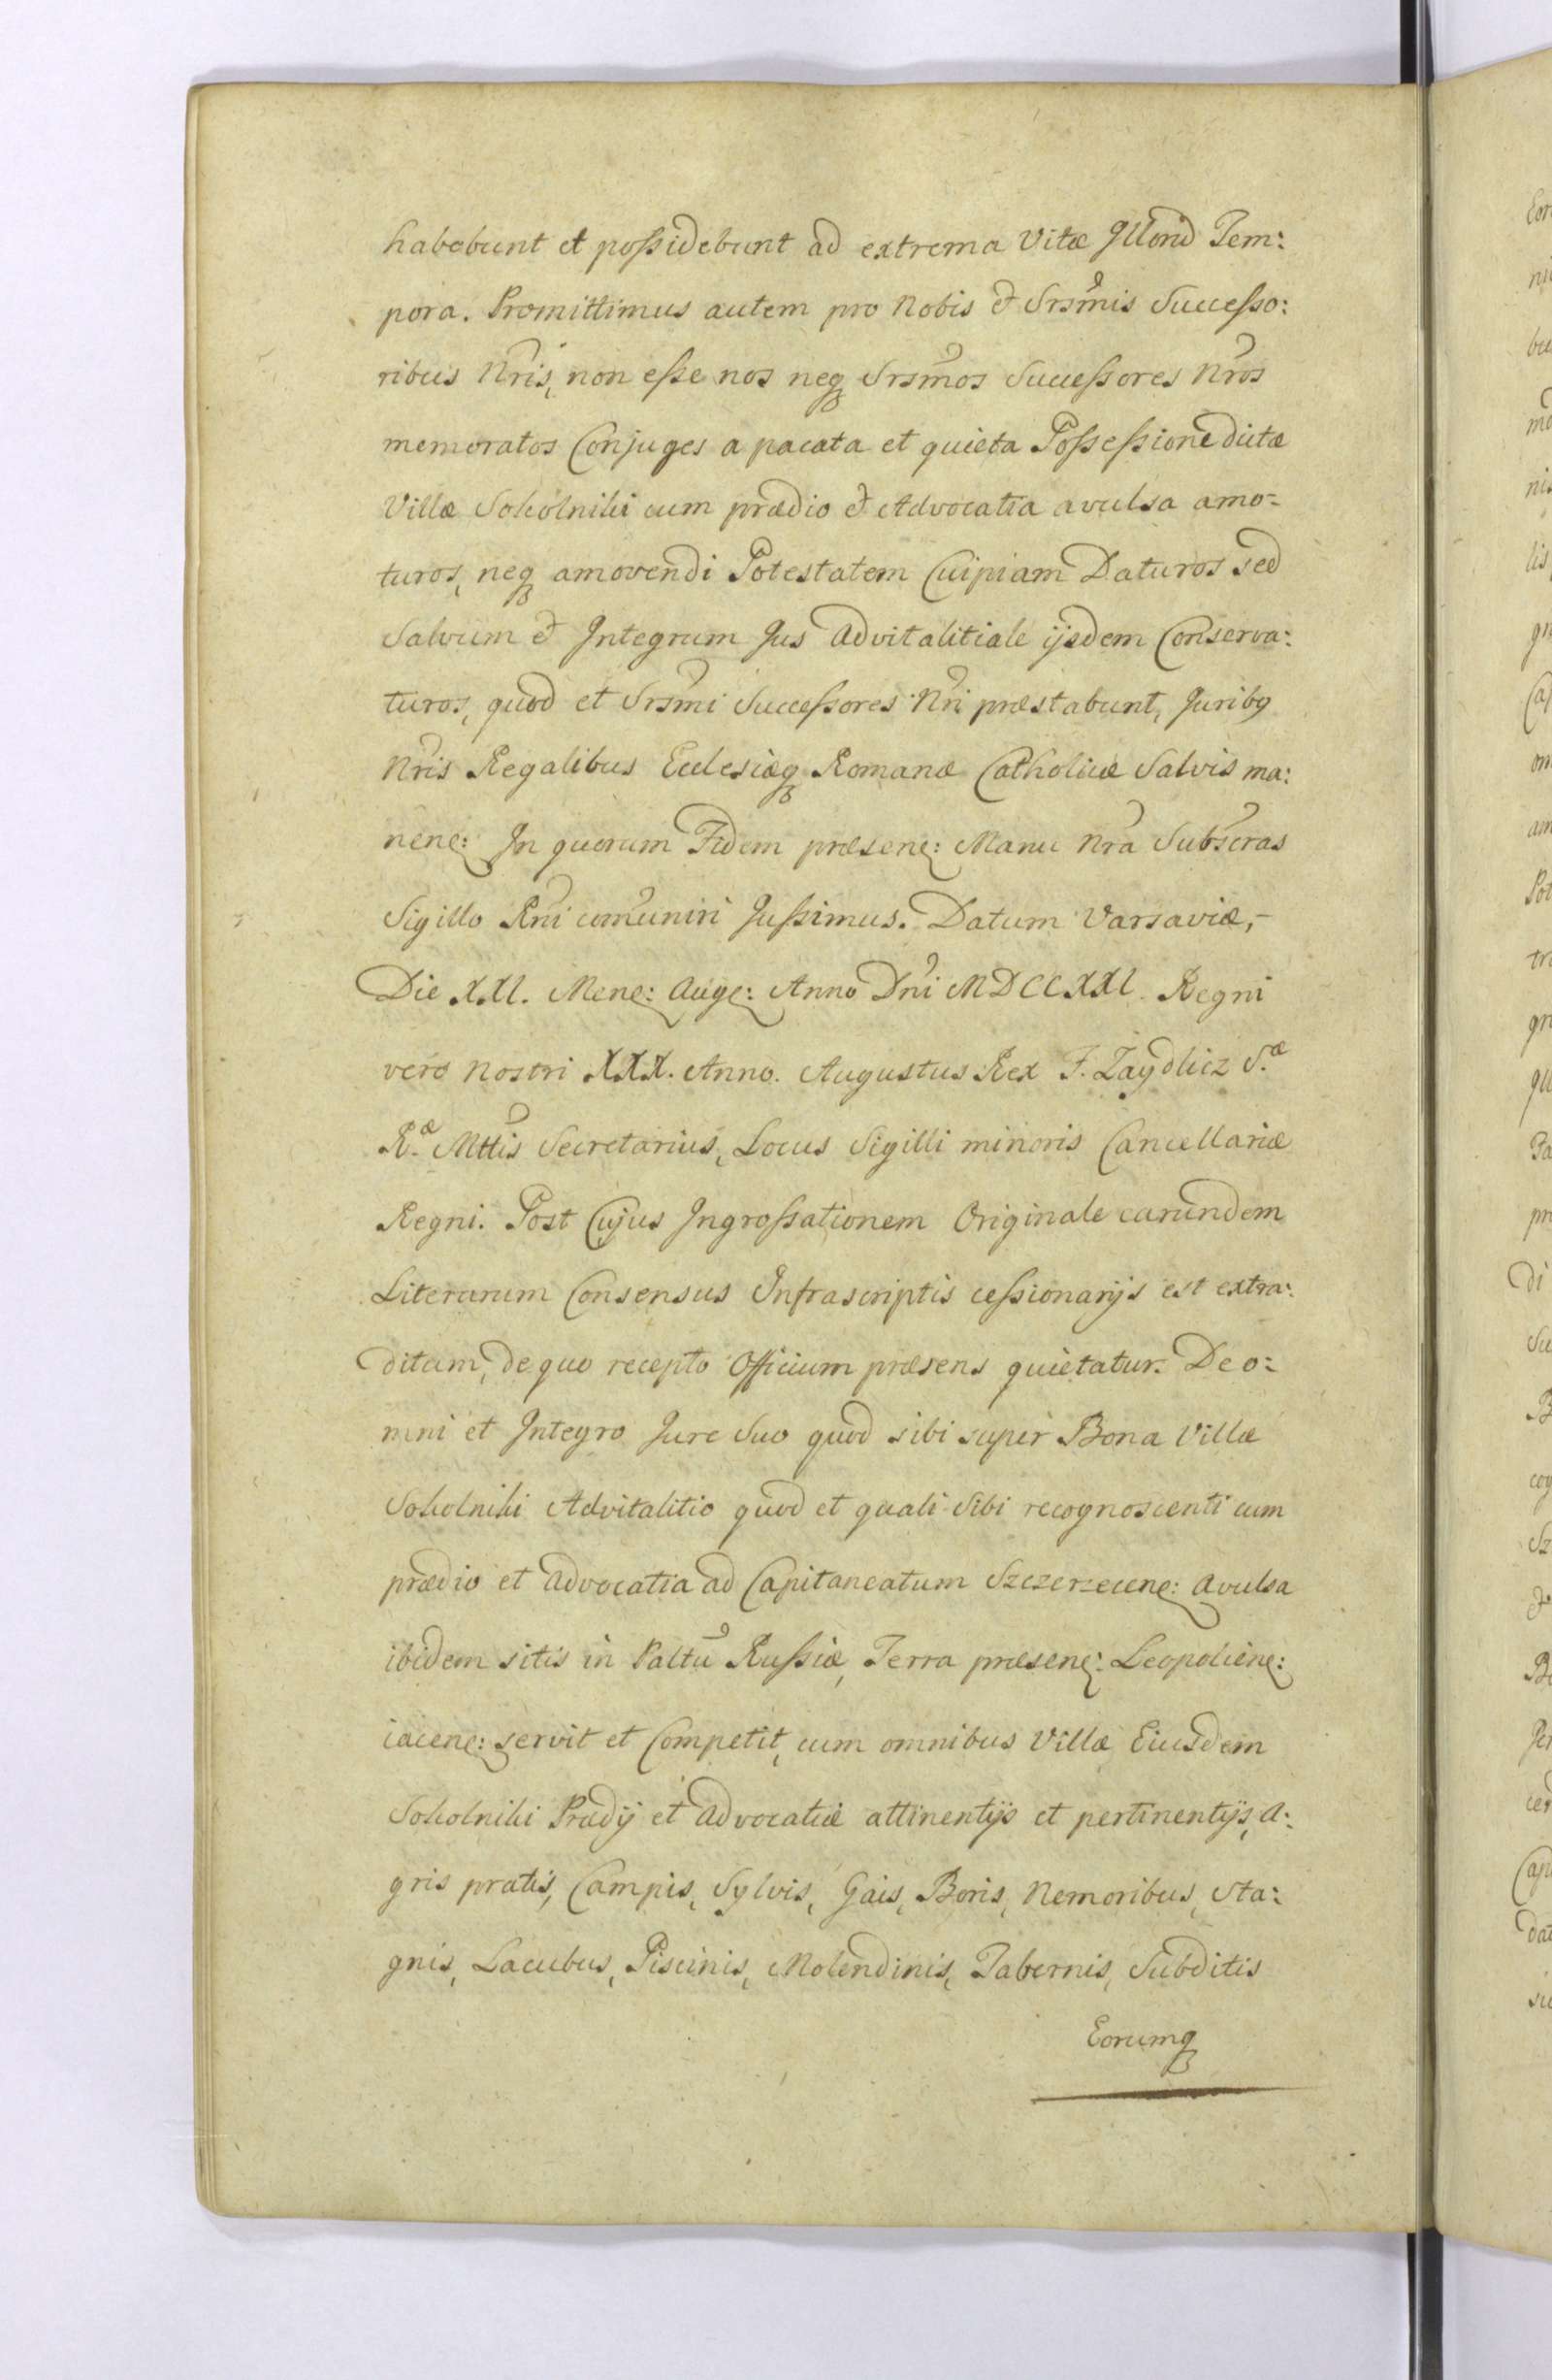 habebunt et possidebunt ad extrema Vitæ Illorũ Tem:
pora. Promittimus autem pro Nobis & Srsm̃is Successo:
ribus Nr̃is, non esse nos neq Srsm̃os Successores Nr̃os
memoratos Conjuges a pacata et quieta Possessione dictæ
Villæ Sokolniki cum prædio & Advocatia avulsa amo-
turos, neq amovendi Potestatem Cuipiam Daturos sed
Salvum & Integrum Jus Advitalitiale ijsdem Conserva:
turos, quod et Srsm̃i Successores Nr̃i præstabunt, Juribq
Nr̃is Regalibus Ecclesiæq Romanæ Catholicæ Salvis ma:
nenẽ: In quorum Fidem præsenẽ: Manu Nr̃a Subscras
Sigillo Rñi com̃uniri Jussimus. Datum Varsaviæ,-
Die XXI. Mene: Auge: Anno Dñi MDCCXXI. Regni
vero nostri XXX. Anno. Augustus Rex F. Zaydlicz S.æ
R.æ Mttis Secretarius, Locus Sigilli minoris Cancellariæ
Regni. Post Cujus Ingrossationem Originale earundem
Literarum Consensus Infrascriptis cessionarijs est extra:
ditum, de quo recepto Officium præsens quietatur. De o:
mni et Integro Jure Suo quod sibi super Bona Villæ
Sokolniki Advitalitio quod et quali Sibi recognoscenti cum
prædio et Advocatia ad Capitaneatum Szczerzecene: Avulsa
ibidem sitis in Paltũ Russiæ, Terra præsene: Leopoliene:
iacene: servit et Competit, cum omnibus Villæ Eiusdem
Sokolniki Prædij et Advocatiæ attinentijs et pertinentijs, A:
gris pratis, Campis, Sylvis, Gais, Boris, Nemoribus, Sta:
gnis, Lacubus, Piscinis, Molendinis, Tabernis, Subditis
Eorumq